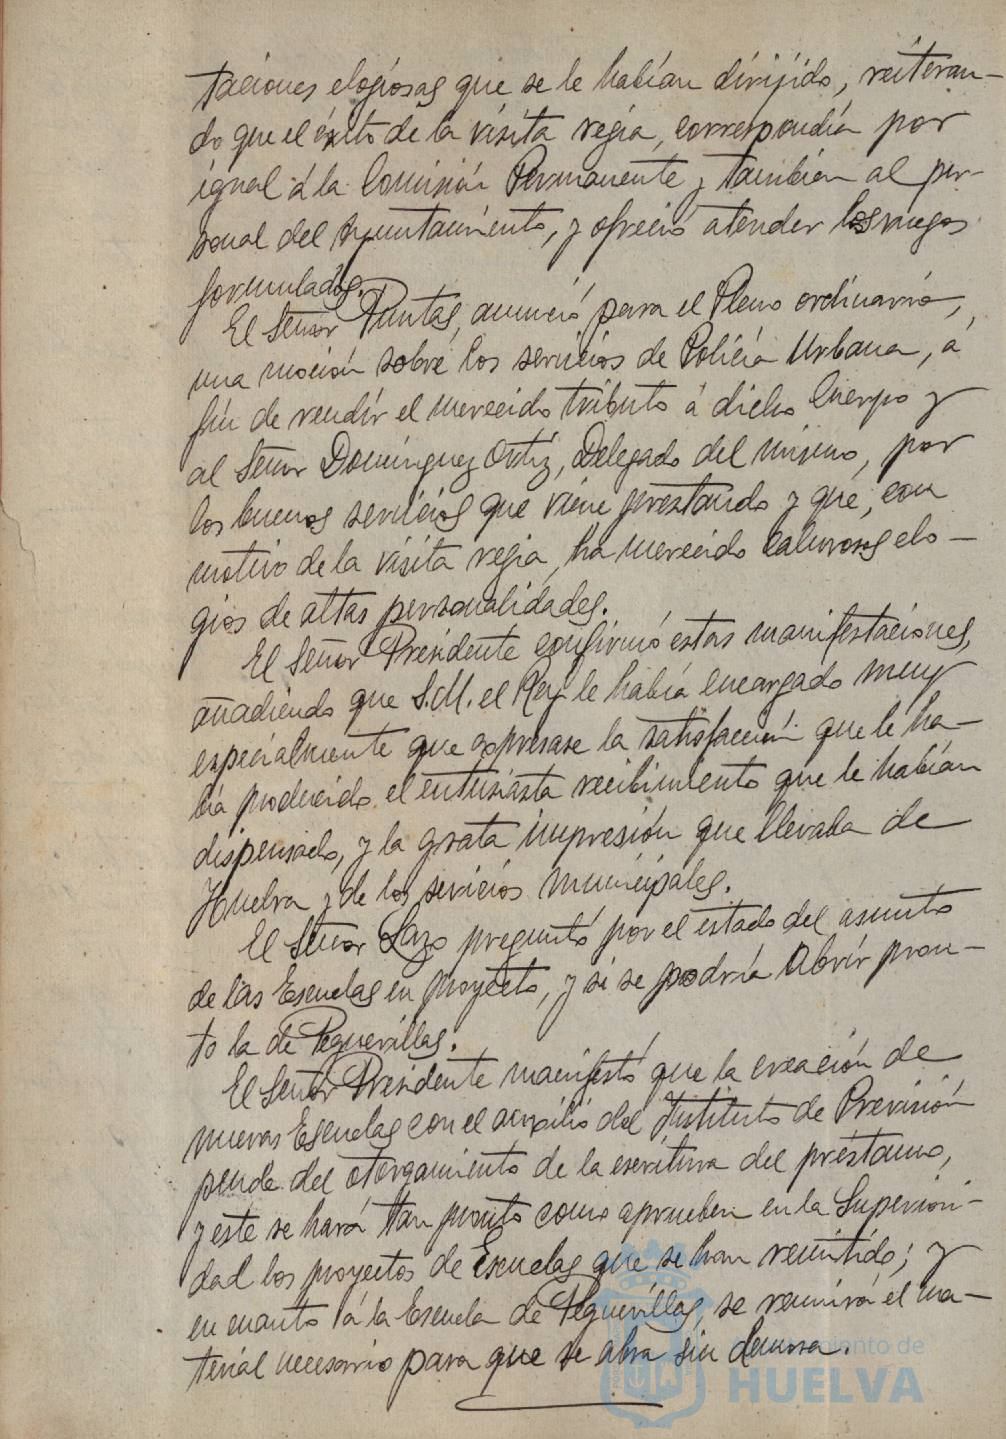 taciones elogiosas que se le habían dirijido, reiteran-
do que el éxito de la visita regia, correspondía por
igual á la Comisión Permanente y también al per-
sonal del Ayuntamiento, y ofreció atender los ruegos
formulados.
El Señor Puntas, anunció para el Pleno ordinario,
una moción sobre los servicios de Policía Urbana, á
fin de rendir el merecido tributo á dicho Cuerpo y
al Señor Domínguez Ortiz, Delegado del mismo, por
los buenos servicios que viene prestando y que, con
motivo de la visita regia, ha merecido calurosos elo-
gios de altas personalidades.
El Señor Presidente confirmó estas manifestaciones,
añadiendo que S.M. el Rey le había encargado muy
especialmente que expresase la satisfacción que le ha-
bía producido el entusiasta recibimiento que le habían
dispensado, y la grata impresión que llevaba de
Huelva y de los servicios municipales.
El Señor Lazo preguntó por el estado del asunto
de las Escuelas en proyecto, y si se podría abrir pron-
to la de Peguerillas.
El Señor Presidente manifestó que la creación de
nuevas Escuelas con el auxilio del Instituto de Previsión
pende del otorgamiento de la escritura del préstamo,
y este se hará tan pronto como aprueben en la Superiori-
dad los proyectos de Escuelas que se han remitido; y
en cuanto á la Escuela de Peguerillas, se reunirá el ma-
terial necesario para que se abra sin demora.
Ayuntamiento de
HUELVA